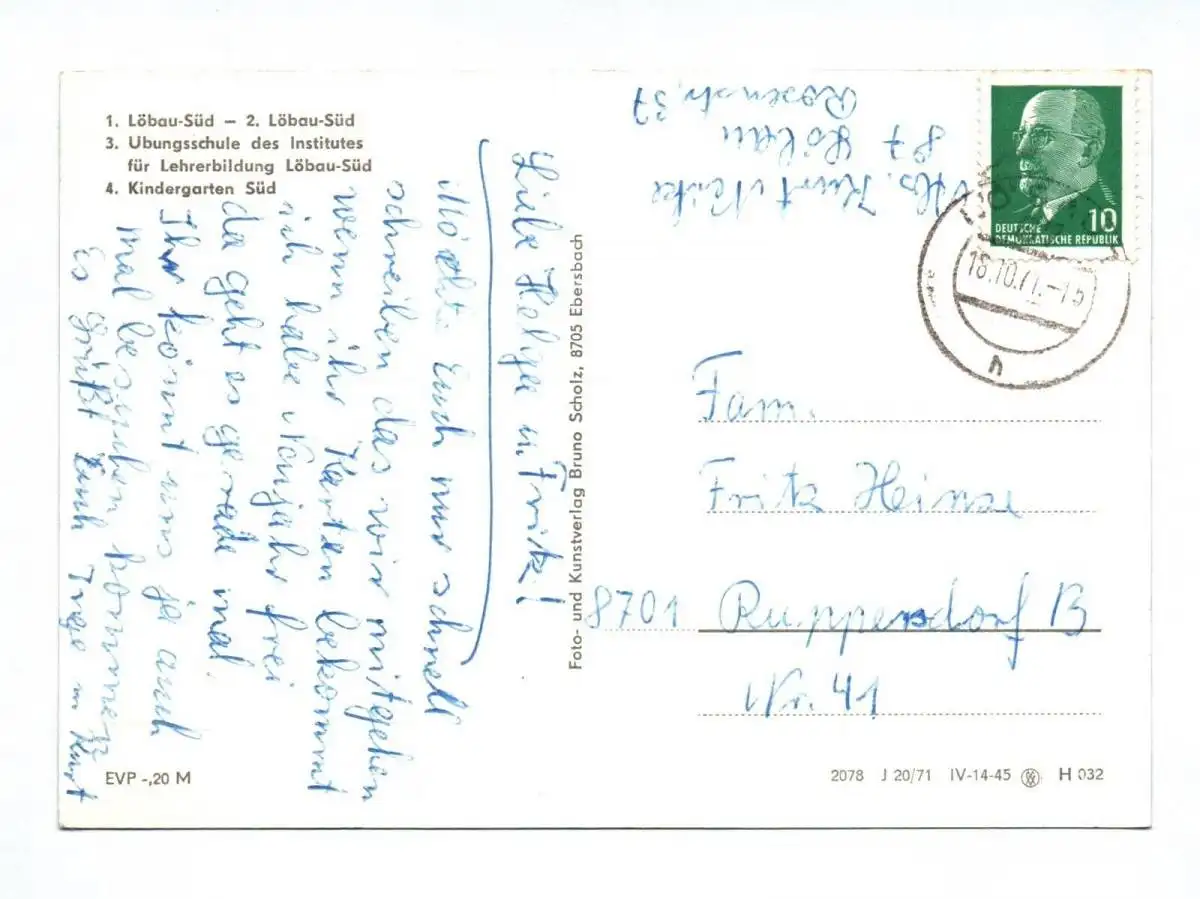 1. Löbau-Süd – 2. Löbau-Süd
3. Übungsschule des Institutes
für Lehrerbildung Löbau-Süd
4. Kindergarten Süd
Liebe Helga u. Fritz!
Möchte Euch nur schnell
schreiben das wir mitgehen
wenn ihr Karten bekommt
ich habe Neujahr frei
da geht es gerade mal.
Ihr könnt uns ja auch
mal besuchen kommen
Es grüßt Euch Inge u Kurt
EVP -,20 M
Foto- und Kunstverlag Bruno Scholz, 8705 Ebersbach
Abs. Kurt
87 Löbau
Rosenstr. 37
DEUTSCHE
DEMOKRATISCHE REPUBLIK
10
18.10.71.-15
h
Fam.
Fritz Heinze
8701 Ruppersdorf B
Nr. 41
2078 J 20/71 IV-14-45 H 032